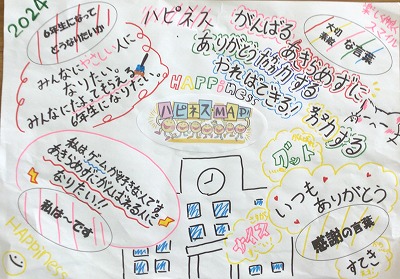 2024
6年生になって
どうなりたいか
みんなにやさしい人に
なりたい。
みんなにたよってもらえる
6年生になりたい
ハピネス
HAPPINESS
がんばる
あきらめずに
ありがとう
協力する
やればできる!!
努力する
大切
な言葉
スマイル
ハピネスMAP
グット
ナイス
私は
あきらめずにがんばれる人に
なりたい!!
私は〜です
HAPPINESS
いつも
ありがとう
感謝の言葉
すてき